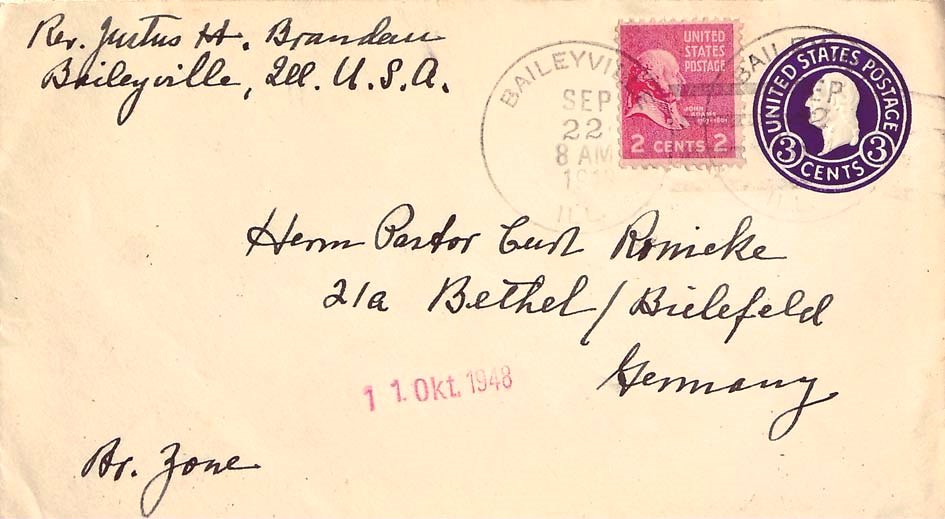 Rev. Justus H. Brandau
Baileyville, Ill. U.S.A.
BAILEYVI
SEP
22
8 AM
ILL.
UNITED
STATES
POSTAGE
JOHN
ADAMS
2 CENTS 2
BAILEY
UNITED STATES POSTAGE
3 CENTS 3
Herrn Pastor Curt Ronicke
21a Bethel / Bielefeld
Germany
1 1. Okt. 1948
Br. Zone